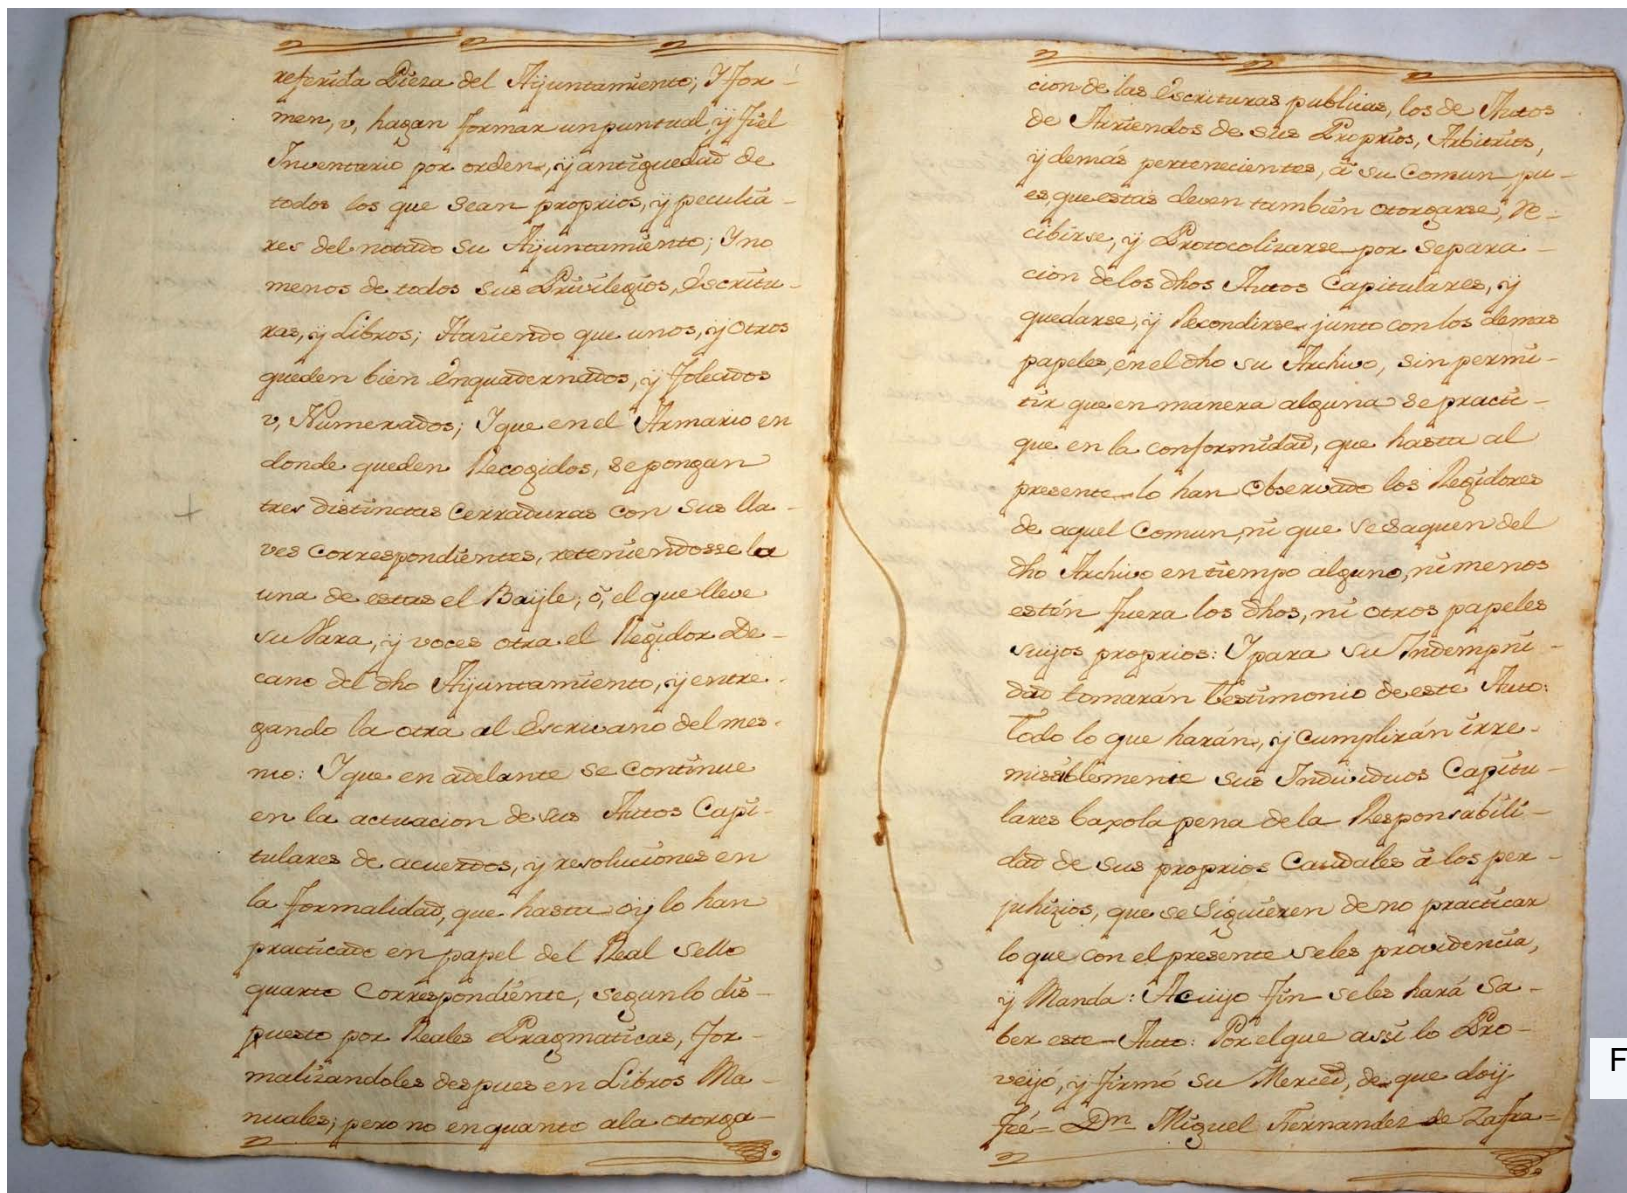 referida Pieza del Aÿuntamiento; Y for-
men, v, hagan formar un puntual, ÿ fiel
Inventario por orden, ÿ antiguedad de
todos los que sean proprios, ÿ peculia-
res del notado su Aÿuntamiento; Y no
menos de todos sus Privilegios, Escritu-
ras, ÿ Libros; Haziendo que unos, ÿ otros
queden bien enquadernados, ÿ foleados
v, Numerados; Y que en el Armario en
donde queden Recogidos, se pongan
tres distinctas Cerraduras con sus lla-
ves correspondientes, reteniendosse la
una de estas el Baÿle, ó, el que lleve
su Vara, ÿ voces otra el Regidor De-
cano del dho Aÿuntamiento, ÿ entre-
gando la otra al Escrivano del mes-
mo: Y que en adelante se continue
en la actuacion de sus Autos Capi-
tulares de acuerdos, ÿ resoluciones en
la formalidad, que hasta oÿ lo han
practicado en papel del Real Sello
quarto Correspondiente, segun lo dis-
puesto por Reales Pragmaticas, for-
malizandoles despues en Libros Ma-
nuales; pero no en quanto a la otorga-
cion de las Escrituras publicas, los de Autos
de Arriendos de sus Proprios, Arbitrios,
ÿ demás pertenecientes, á su Comun, pu-
es, que estas deven tambien otorgarse, Re-
cibirse, ÿ Protocolizarse por separa-
cion de los dhos Autos Capitulares, ÿ
quedarse, ÿ Recondirse junto con los demas
papeles, en el dho su Archivo, sin permi-
tir que en manera alguna se practi-
que en la conformidad, que hasta al
presente lo han observado los Regidores
de aquel Comun, ni que se saquen del
dho Archivo en tiempo alguno, ni menos
estén fuera los dhos, ni otros papeles
suÿos proprios: Y para su Indempni-
dad tomarán testimonio de este Auto:
Todo lo que harán, ÿ Cumplirán irre-
misiblemente sus Individuos Capitu-
lares baxo la pena de la Responsabili-
dad de sus proprios Caudales á los per-
juhizios, que se siguieren de no practicar
lo que con el presente se les providencia,
ÿ Manda: A cuÿo fin se les hará sa-
ber este Auto: Por el que assi lo Pro-
veÿó, ÿ firmó su Merced, de que doÿ
fée= Dn Miguel Fernandez de Zafra=
F